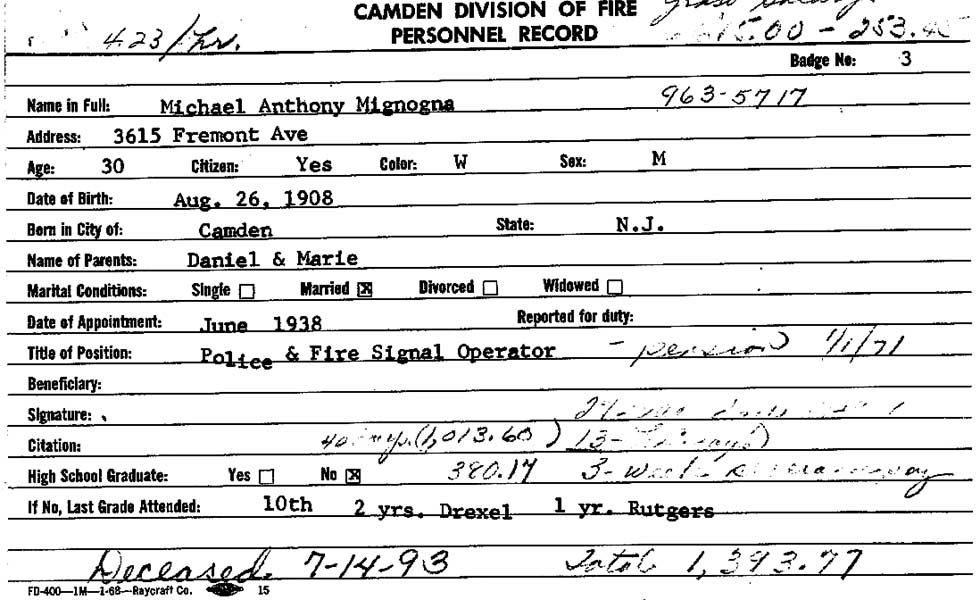 CAMDEN DIVISION OF FIRE
4.23/hr. PERSONNEL RECORD - 253.
Badge No: 3
Name in Full: Michael Anthony Mignogna 963-5717
Address: 3615 Fremont Ave
Age: 30 Citizen: Yes Color: W Sex: M
Date of Birth: Aug. 26, 1908
Born in City of: Camden State: N.J.
Name of Parents: Daniel & Marie
Marital Conditions: Single ☐ Married ☒ Divorced ☐ Widowed ☐
Date of Appointment: June 1938 Reported for duty:
Title of Position: Police & Fire Signal Operator - pension 1/1/71
Beneficiary:
Signature:
Citation: (1,013.60) 13-
High School Graduate: Yes ☐ No ☒ 380.17 3-week
If No, Last Grade Attended: 10th 2 yrs. Drexel 1 yr. Rutgers
Deceased 7-14-93 Total 1,393.77
FD-400—1M—1-68—Raycraft Co. 15